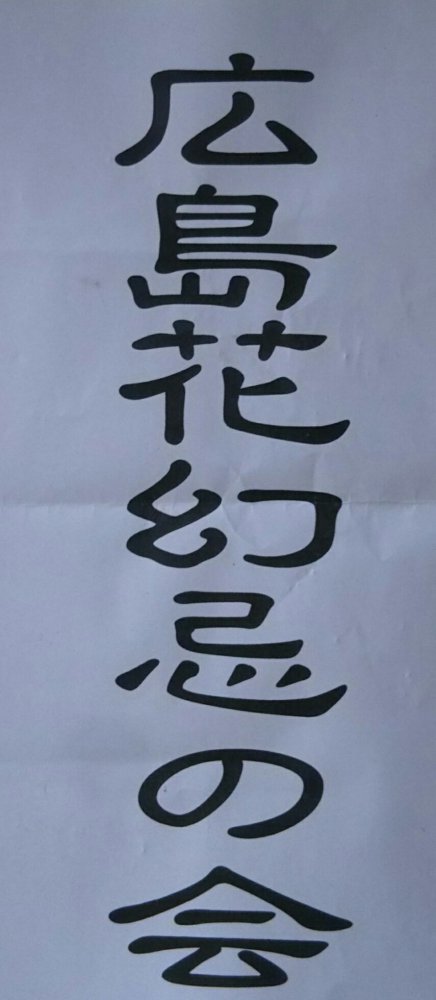 広島花幻忌の会